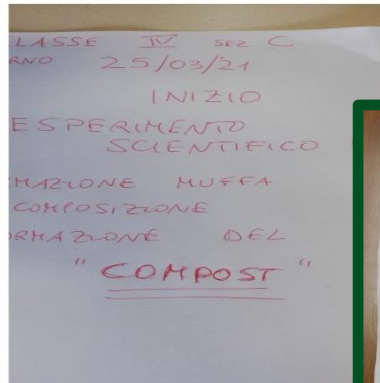 LASSE IV SEZ C
RNO 25/03/21
INIZIO
ESPERIMENTO
SCIENTIFICO
MAZIONE MUFFA
COMPOSIZIONE
RMAZIONE DEL
"COMPOST"